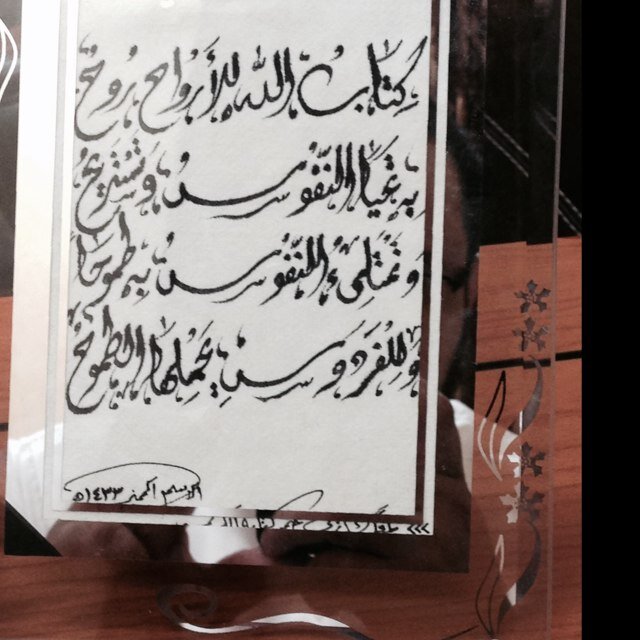 كِتَابُ اللهِ لِلأَرْوَاحِ رُوحٌ
بِهِ تَحْيَا النُّفُوسُ وَتَسْتَرِيحُ
وَتَمْتَلِئُ النُّفُوسُ بِهِ طُمُوحًا
وَلِلْفِرْدَوْسِ يَحْمِلُهَا الطُّمُوحُ
١٤٣٣هـ